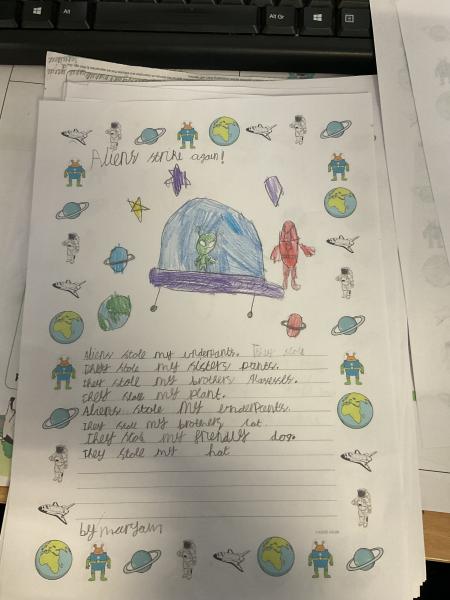 Alt
Alt Gr
Aliens strike again!
Aliens stole my underpants. They stole
They stole my sisters pants.
they stole my brothers
they stole my plant.
Aliens stole my underpants.
They stole my brothers cat.
They stole my friendly dog.
They stole my hat
by maryam